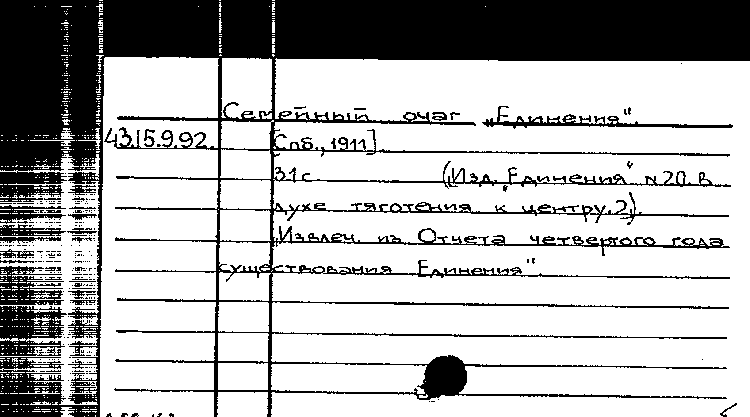 Семейный очаг „Единения".
43.15.9.92. [Спб., 1911].
31с. („Изд. „Единения" №20. В
духе тяготения к центру.2).
„Извлеч. из Отчета четвертого года
существования Единения".